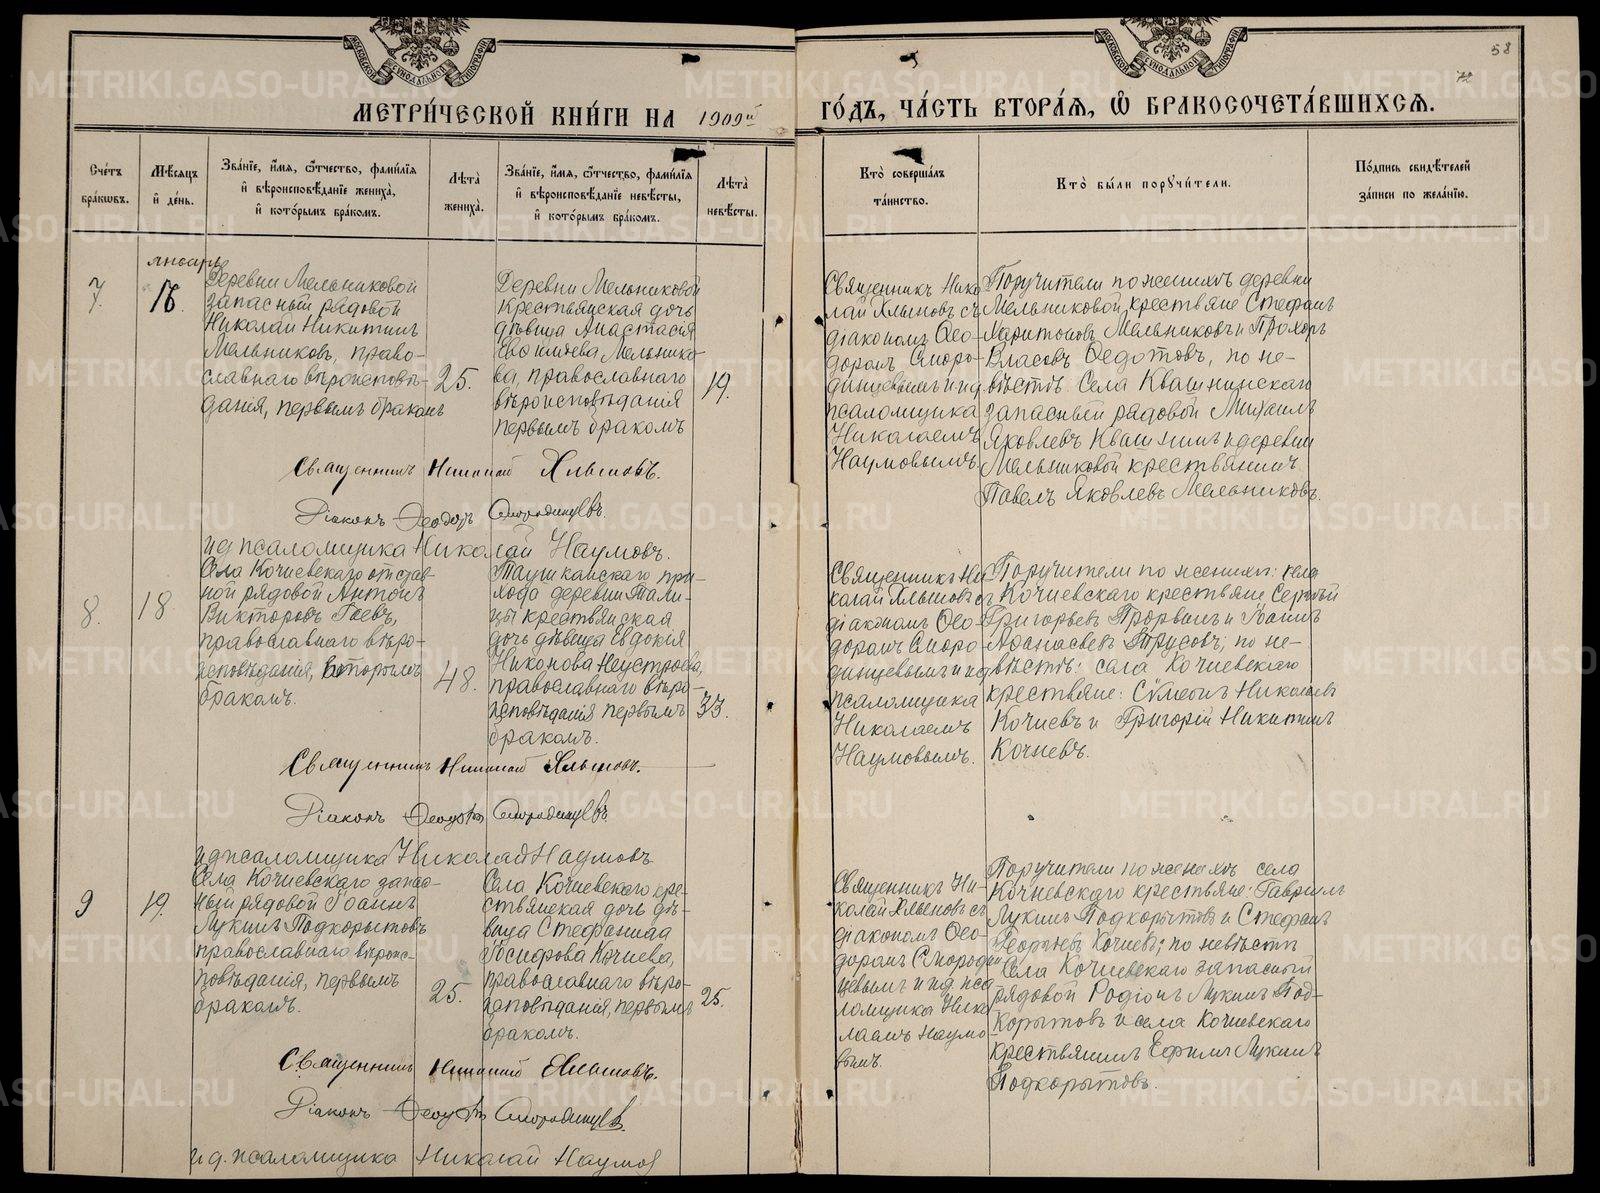 58
72
МОСКОВСКОЙ СѴНОДАЛЬНОЙ ТИПОГРАФІИ
МОСКОВСКОЙ СѴНОДАЛЬНОЙ ТИПОГРАФІИ
МЕТРИ́ЧЕСКОЙ КНИ́ГИ НА 1909й ГО́ДЪ, ЧА́СТЬ ВТОРА́Я, Ѽ БРАКОСОЧЕТА́ВШИХСЯ.
Сче́тъ
бра́кѡвъ.
Мѣ́сяцъ
и҆ де́нь.
Зва́нїе, и҆́мя, ѻ҆́тчество, фами́лїя
и҆ вѣроисповѣ́данїе жениха̀,
и҆ кото́рымъ бра́комъ.
Лѣта̀
жениха̀.
Зва́нїе, и҆́мя, ѻ҆́тчество, фами́лїя
и҆ вѣроисповѣ́данїе невѣ́сты,
и҆ кото́рымъ бра́комъ.
Лѣта̀
невѣ́сты.
Кто̀ соверша́лъ
та́инство.
Кто̀ бы́ли порꙋчи́тели.
По́дпись свидѣ́телей
за́писи по жела́нїю.
январь
7.
18.
Деревни Мельниковой
запасный рядовой
Николай Никитинъ
Мельниковъ, право-
славнаго вѣроисповѣ-
данія, первымъ бракомъ
25.
Деревни Мельниковой
крестьянская дочь
дѣвица Анастасія
Евсикиева Мельнико-
ва, православнаго
вѣроисповѣданія
первымъ бракомъ
19.
Священникъ Нико-
лай Хлыновъ съ
діакономъ Ѳео-
доромъ Сморо-
динцевымъ и ид
псаломщика
Николаемъ
Наумовымъ.
Поручители по женихѣ деревни
Мельниковой крестьяне Стефанъ
Харитоновъ Мельниковъ и Прохоръ
Власовъ Ѳедотовъ, по не-
вѣстѣ: Села Квашнинскаго
запасный рядовой Михаилъ
Яковлевъ Квашнинъ и деревни
Мельниковой крестьянинъ
Павелъ Яковлевъ Мельниковъ.
Священникъ Николай Хлыновъ.
Діаконъ Ѳеодоръ Смородинцевъ.
и д псаломщика Николай Наумовъ.
8.
18
Села Кочневскаго отстав-
ной рядовой Антонъ
Викторовъ Гаевъ,
православнаго вѣро-
исповѣданія, вторымъ
бракомъ.
48.
Таушканскаго при-
хода деревни Тали-
цы крестьянская
дочь дѣвица Евдокія
Никонова Неустроева,
православнаго вѣро-
исповѣданія первымъ
бракомъ.
33.
Священникъ Ни-
колай Хлыновъ съ
діакономъ Ѳео-
доромъ Сморо-
динцевымъ и ид
псаломщика
Николаемъ
Наумовымъ.
Поручители по женихѣ: села
Кочневскаго крестьяне Сергѣй
Григорьевъ Прорвинъ и Іоаннъ
Аѳанасьевъ Трусовъ; по не-
вѣстѣ: села Кочневскаго
крестьяне: Сѵмеонъ Николаевъ
Кочневъ и Григорій Никитинъ
Кочневъ.
Священникъ Николай Хлыновъ.
Діаконъ Ѳеодоръ Смородинцевъ.
и д псаломщика Николай Наумовъ
9
19.
Села Кочневскаго запас-
ный рядовой Іоаннъ
Лукинъ Подкорытовъ
православнаго вѣроис-
повѣданія, первымъ
бракомъ.
25.
Села Кочневскаго кре-
стьянская дочь дѣ-
вица Стефанида
Іосифова Кочнева,
православнаго вѣро-
исповѣданія, первымъ
бракомъ.
25.
Священникъ Ни-
колай Хлыновъ съ
діакономъ Ѳео-
доромъ Смородин
цевымъ и ид. пса
ломщика Нико
лаемъ Наумо
вымъ.
Поручители по женихѣ села
Кочневскаго крестьяне: Гавріилъ
Лукинъ Подкорытовъ и Стефанъ
Георгіевъ Кочневъ; по невѣстѣ
Села Кочневскаго запасный
рядовой Родіонъ Лукинъ Под-
корытовъ и села Кочневскаго
крестьянинъ Ефимъ Лукинъ
Подкорытовъ.
Священникъ Николай Хлыновъ.
Діаконъ Ѳеодоръ Смородинцевъ.
и д. псаломщика Николай Наумов